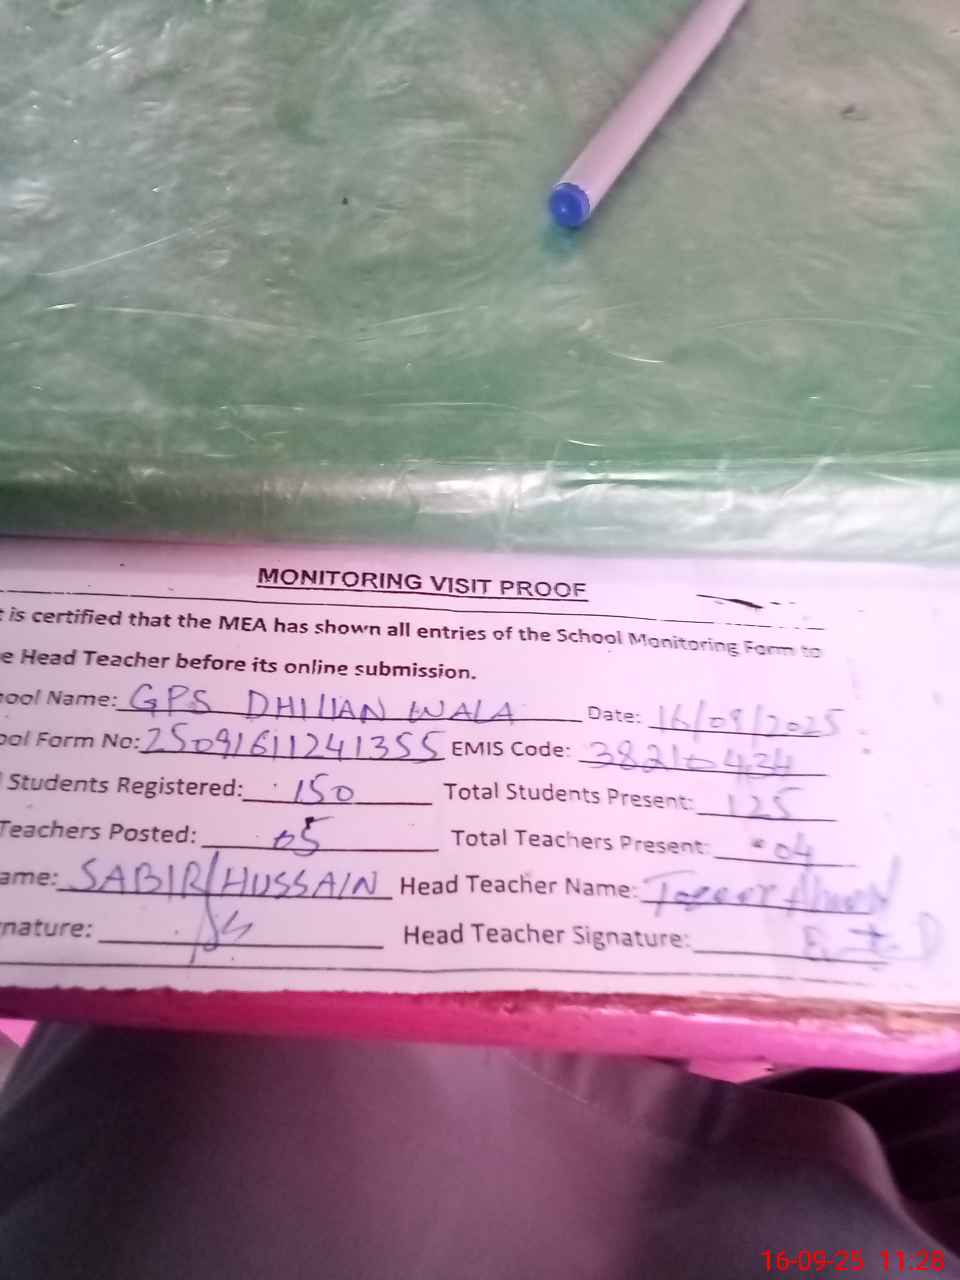 MONITORING VISIT PROOF
is certified that the MEA has shown all entries of the School Monitoring Form to
e Head Teacher before its online submission.
ool Name: GPS DHILIAN WALA Date: 16/09/2025
ool Form No: 25091611241355 EMIS Code:
Students Registered: 150 Total Students Present: 125
Teachers Posted: 05 Total Teachers Present: 04
ame: SABIR HUSSAIN Head Teacher Name: Ahmed
nature: Head Teacher Signature:
16-09-25 11:28